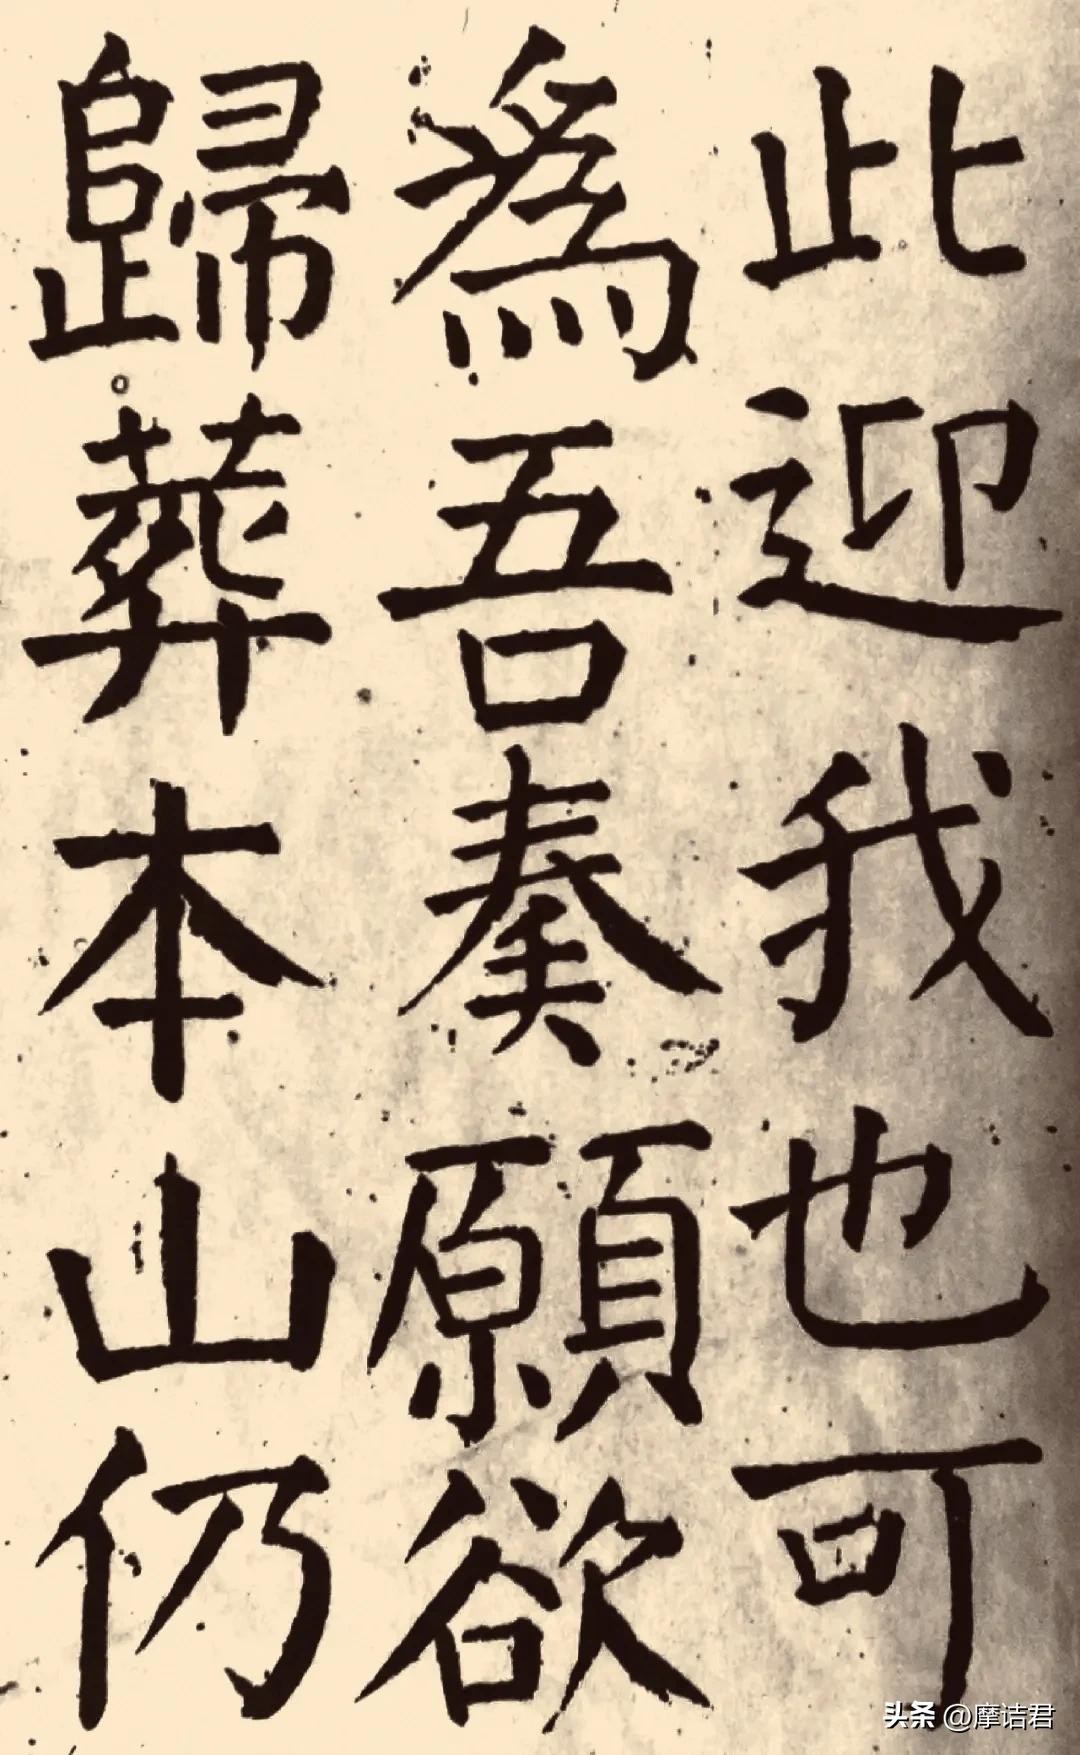 此迎我也可
為吾奏願欲
歸葬本山仍
头条 @摩诘君